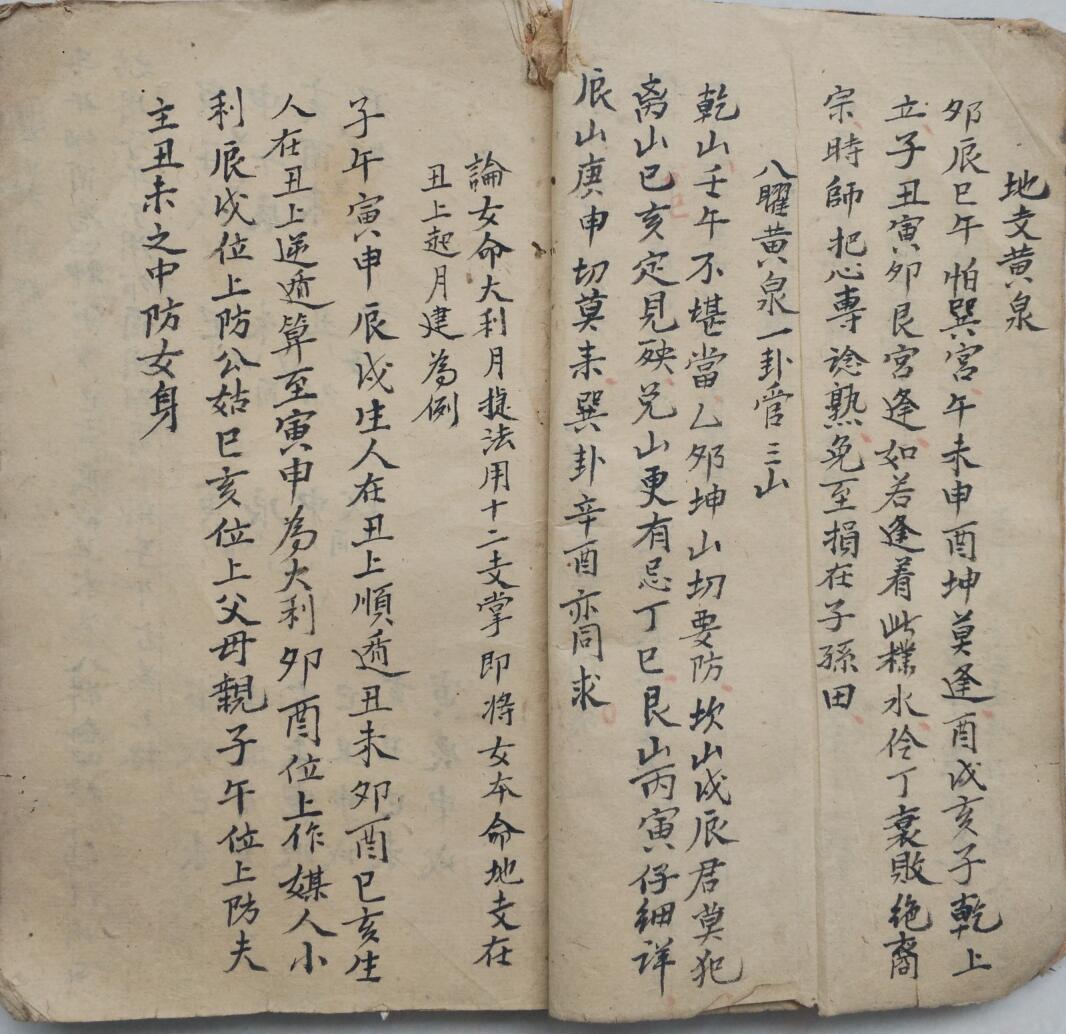 地支黄泉
夘辰巳午怕巽宮午未申酉坤莫逢酉戌亥子乾上
立子丑寅夘艮宮逢如若逢着此樣水伶丁衰敗絶裔
宗時師把心專谂熟免至損在子孫田
八曜黄泉一卦管三山
乾山壬午不堪當乙夘坤山切要防坎山戌辰君莫犯
离山巳亥定見殃兑山更有忌丁巳艮山丙寅仔細详
辰山庚申切莫来巽卦辛酉亦同求
論女命大利月捷法用十二支掌即将女本命地支在
丑上起月建為例
子午寅申辰戌生人在丑上順遁丑未夘酉巳亥生
人在丑上逆遁算至寅申為大利夘酉位上作媒人小
利辰戌位上防公姑巳亥位上父母親子午位上防夫
主丑未之中防女身